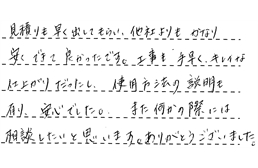 見積りも早く出してもらい、他社よりもかなり
安くできて良かったです。工事も手早く、キレイな
仕上がりだったし、使用方法の説明も
有り、安心でした。また何かの際には
相談したいと思います。ありがとうございました。